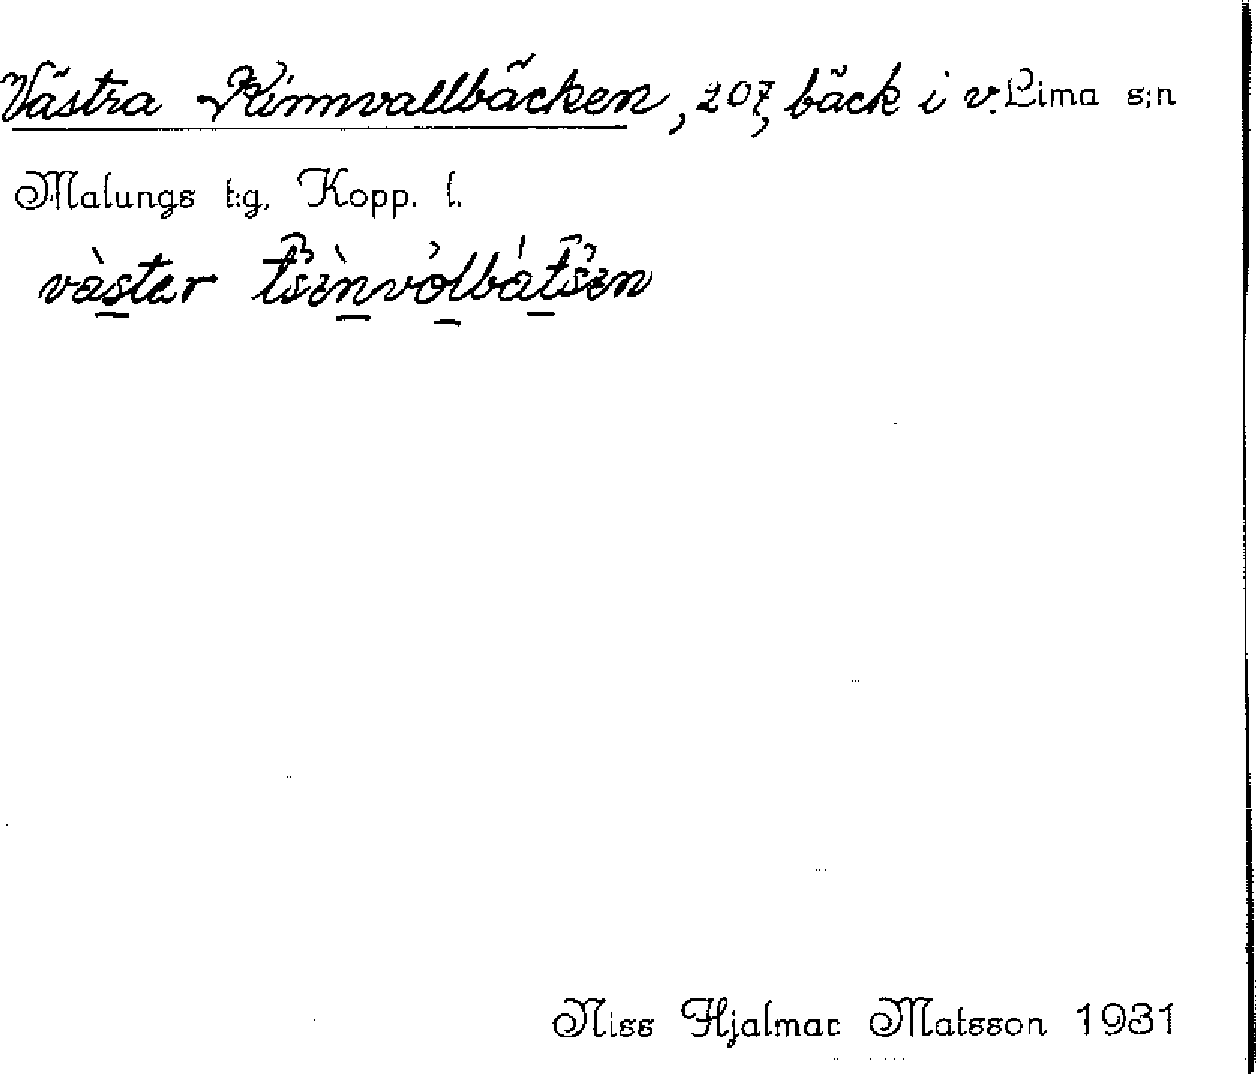 Västra Kinnvallbäcken, 207, bäck i v. Lima s:n
Malungs t:g. Kopp. l.
väster
Niss Hjalmar Matsson 1931